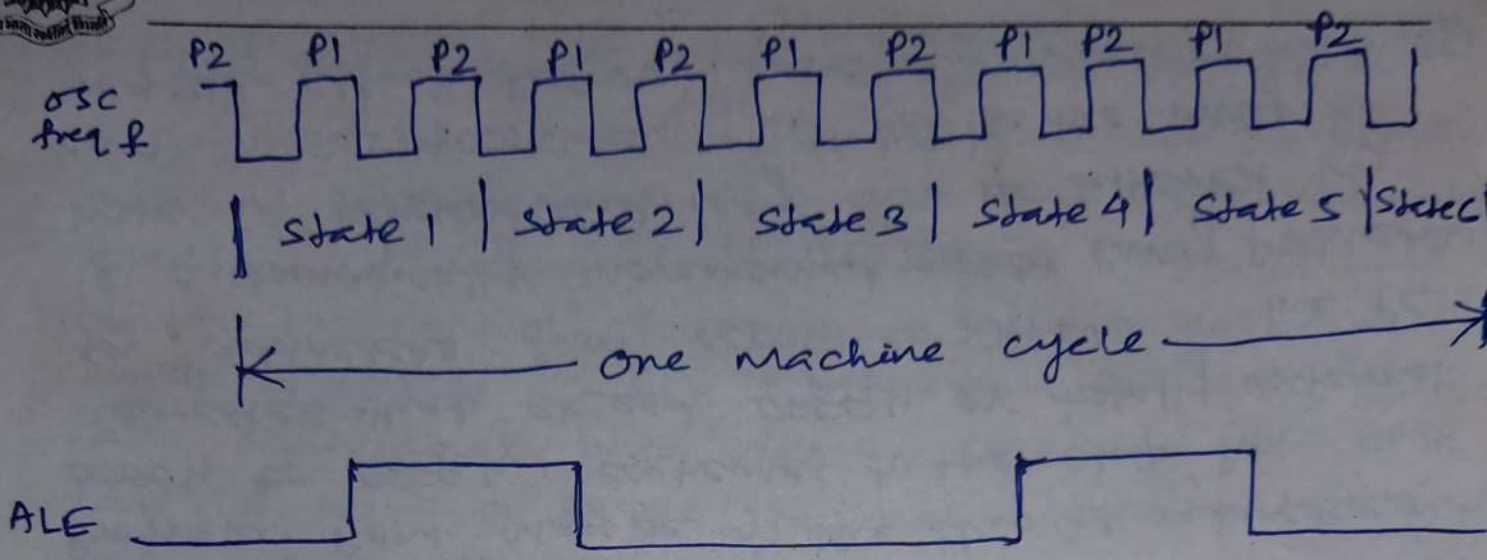 P2 P1 P2 P1 P2 P1 P2 P1 P2 P1 P2
osc
freq f
State 1 | State 2 | State 3 | State 4 | State 5 |
one Machine cycle
ALE